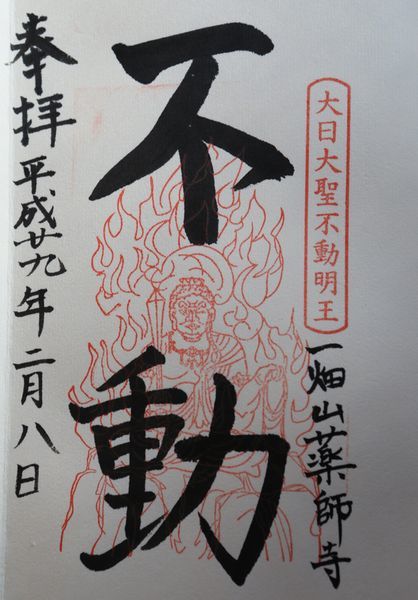 大日大聖不動明王
一畑山薬師寺
不動
奉拝平成廿九年二月八日